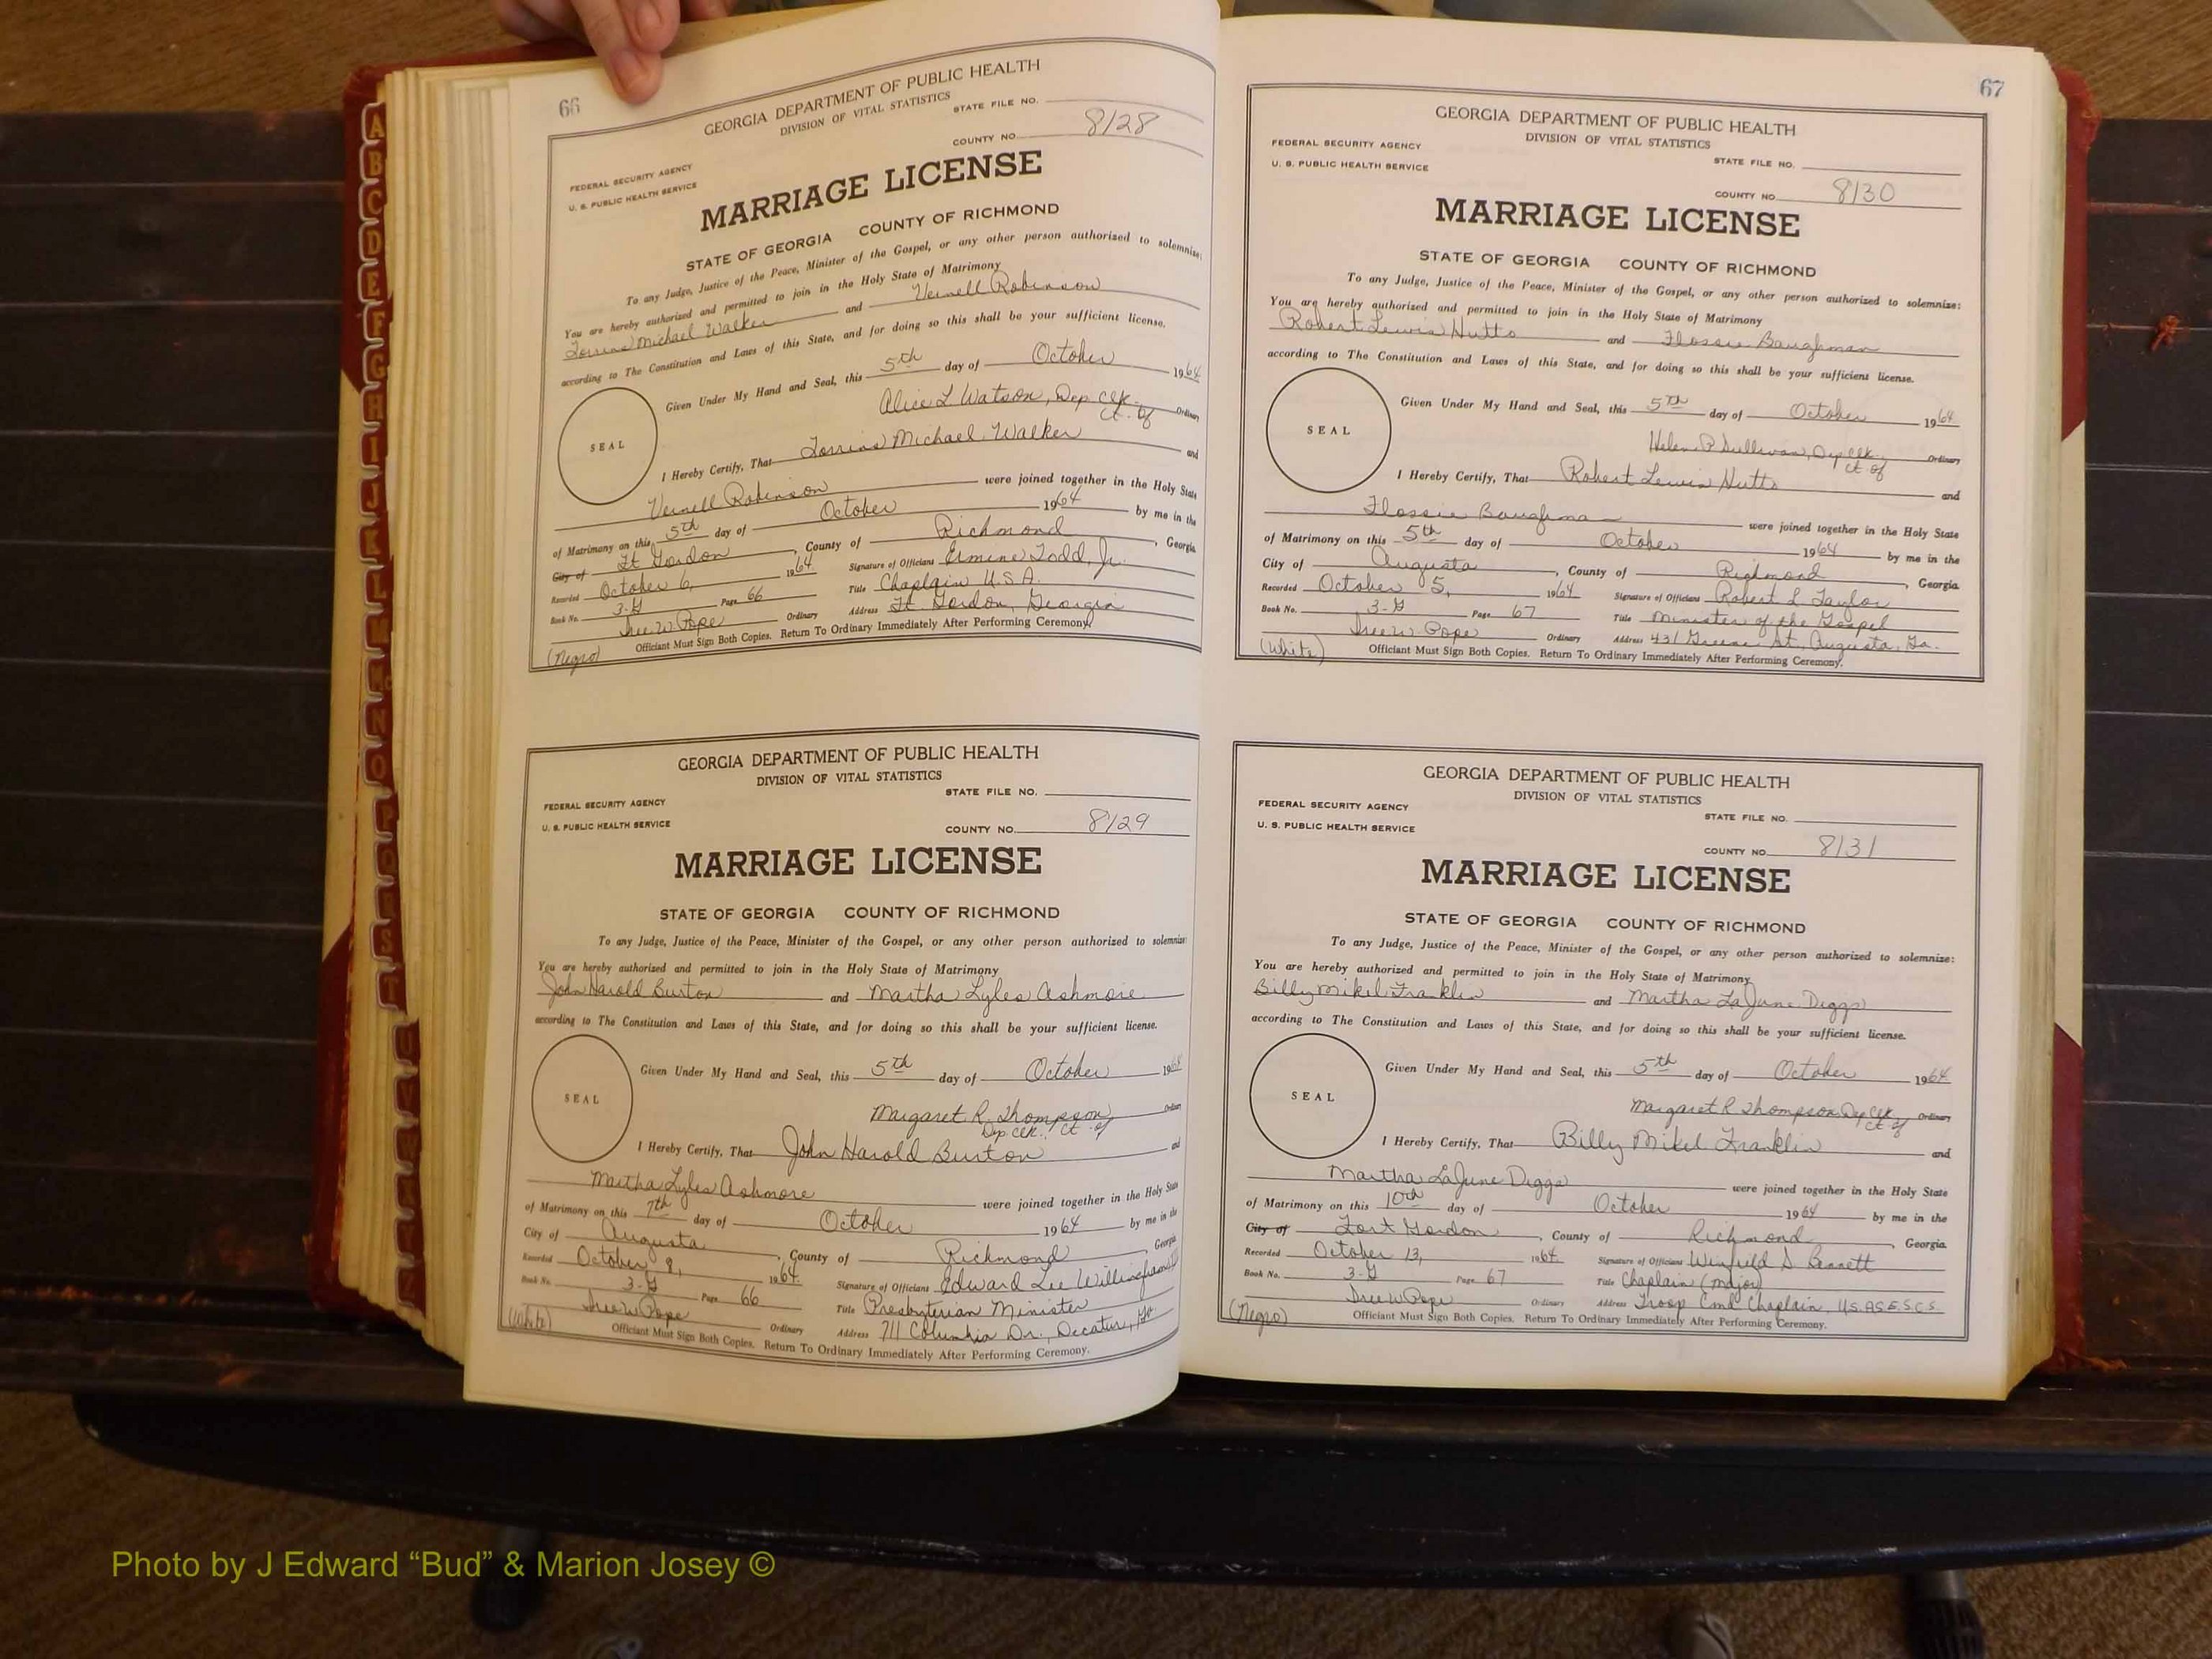 66
GEORGIA DEPARTMENT OF PUBLIC HEALTH
DIVISION OF VITAL STATISTICS
STATE FILE NO.
COUNTY NO. 8128
FEDERAL SECURITY AGENCY
U. S. PUBLIC HEALTH SERVICE
MARRIAGE LICENSE
STATE OF GEORGIA COUNTY OF RICHMOND
To any Judge, Justice of the Peace, Minister of the Gospel, or any other person authorized to solemnize:
You are hereby authorized and permitted to join in the Holy State of Matrimony
Michael Walker and Vernell Robinson
according to The Constitution and Laws of this State, and for doing so this shall be your sufficient license.
Given Under My Hand and Seal, this 5th day of October 1964
Alice L Watson, Dep Clk Ordinary
Ct. of
SEAL
I Hereby Certify, That Michael Walker and
Vernell Robinson were joined together in the Holy State
of Matrimony on this 5th day of October 1964 by me in the
City of Ft Gordon, County of Richmond, Georgia
Recorded October 6, 1964 Signature of Officiant Ermine Todd, Jr.
Book No. 3-G Page 66 Title Chaplain U.S.A.
W Pope Ordinary Address Ft Gordon, Georgia
(Negro) Officiant Must Sign Both Copies. Return To Ordinary Immediately After Performing Ceremony.
GEORGIA DEPARTMENT OF PUBLIC HEALTH
DIVISION OF VITAL STATISTICS
STATE FILE NO.
FEDERAL SECURITY AGENCY
U. S. PUBLIC HEALTH SERVICE
COUNTY NO. 8129
MARRIAGE LICENSE
STATE OF GEORGIA COUNTY OF RICHMOND
To any Judge, Justice of the Peace, Minister of the Gospel, or any other person authorized to solemnize:
You are hereby authorized and permitted to join in the Holy State of Matrimony
John Harold Burton and Martha Lyles Ashmore
according to The Constitution and Laws of this State, and for doing so this shall be your sufficient license.
Given Under My Hand and Seal, this 5th day of October 1964
Margaret R. Thompson Ordinary
Dep Clk. Ct of
SEAL
I Hereby Certify, That John Harold Burton and
Martha Lyles Ashmore were joined together in the Holy State
of Matrimony on this 7th day of October 1964 by me in the
City of Augusta, County of Richmond Georgia
Recorded October 9, 1964 Signature of Officiant Edward Lee Willingham
Book No. 3-G Page 66 Title Presbyterian Minister
W Pope Ordinary Address 711 Columbia Dr., Decatur, Ga
(White) Officiant Must Sign Both Copies. Return To Ordinary Immediately After Performing Ceremony.
67
GEORGIA DEPARTMENT OF PUBLIC HEALTH
DIVISION OF VITAL STATISTICS
FEDERAL SECURITY AGENCY
U. S. PUBLIC HEALTH SERVICE
STATE FILE NO.
COUNTY NO. 8130
MARRIAGE LICENSE
STATE OF GEORGIA COUNTY OF RICHMOND
To any Judge, Justice of the Peace, Minister of the Gospel, or any other person authorized to solemnize:
You are hereby authorized and permitted to join in the Holy State of Matrimony
Robert Lewis Hutto and Flossie Baughman
according to The Constitution and Laws of this State, and for doing so this shall be your sufficient license.
Given Under My Hand and Seal, this 5th day of October 1964
Helen P Sullivan, Dep Clk Ordinary
Ct of
SEAL
I Hereby Certify, That Robert Lewis Hutto and
Flossie Baughman were joined together in the Holy State
of Matrimony on this 5th day of October 1964 by me in the
City of Augusta, County of Richmond, Georgia
Recorded October 5, 1964 Signature of Officiant Robert L Taylor
Book No. 3-G Page 67 Title Minister of the Gospel
W Pope Ordinary Address 431 Greene St, Augusta, Ga.
(White) Officiant Must Sign Both Copies. Return To Ordinary Immediately After Performing Ceremony.
GEORGIA DEPARTMENT OF PUBLIC HEALTH
DIVISION OF VITAL STATISTICS
FEDERAL SECURITY AGENCY
U. S. PUBLIC HEALTH SERVICE
STATE FILE NO.
COUNTY NO. 8131
MARRIAGE LICENSE
STATE OF GEORGIA COUNTY OF RICHMOND
To any Judge, Justice of the Peace, Minister of the Gospel, or any other person authorized to solemnize:
You are hereby authorized and permitted to join in the Holy State of Matrimony
Billy Mikel Franklin and Martha LaJune Diggs
according to The Constitution and Laws of this State, and for doing so this shall be your sufficient license.
Given Under My Hand and Seal, this 5th day of October 1964
Margaret R Thompson Dep Clk. Ordinary
Ct of
SEAL
I Hereby Certify, That Billy Mikel Franklin and
Martha LaJune Diggs were joined together in the Holy State
of Matrimony on this 10th day of October 1964 by me in the
City of Fort Gordon, County of Richmond, Georgia
Recorded October 13, 1964 Signature of Officiant Winfield S Bennett
Book No. 3-G Page 67 Title Chaplain (Major)
W Pope Ordinary Address Troop Cmd Chaplain, U.S.A.S.E.S.C.S.
(Negro) Officiant Must Sign Both Copies. Return To Ordinary Immediately After Performing Ceremony.
A
B
C
D
E
F
G
H
I
J
K
L
M
Mc
N
O
P
Q
R
S
T
Photo by J Edward “Bud” & Marion Josey ©